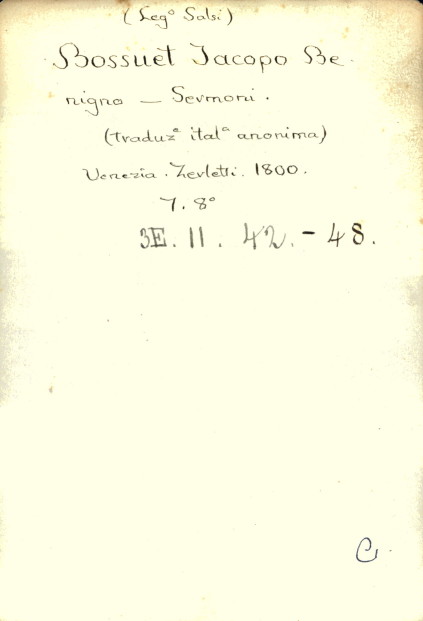 (Leg° Salsi)
Bossuet Jacopo Be-
nigno — Sermoni.
(traduz.e ital.a anonima)
Venezia. Zerletti. 1800.
7. 8°
3E. II. 42. - 48.
C